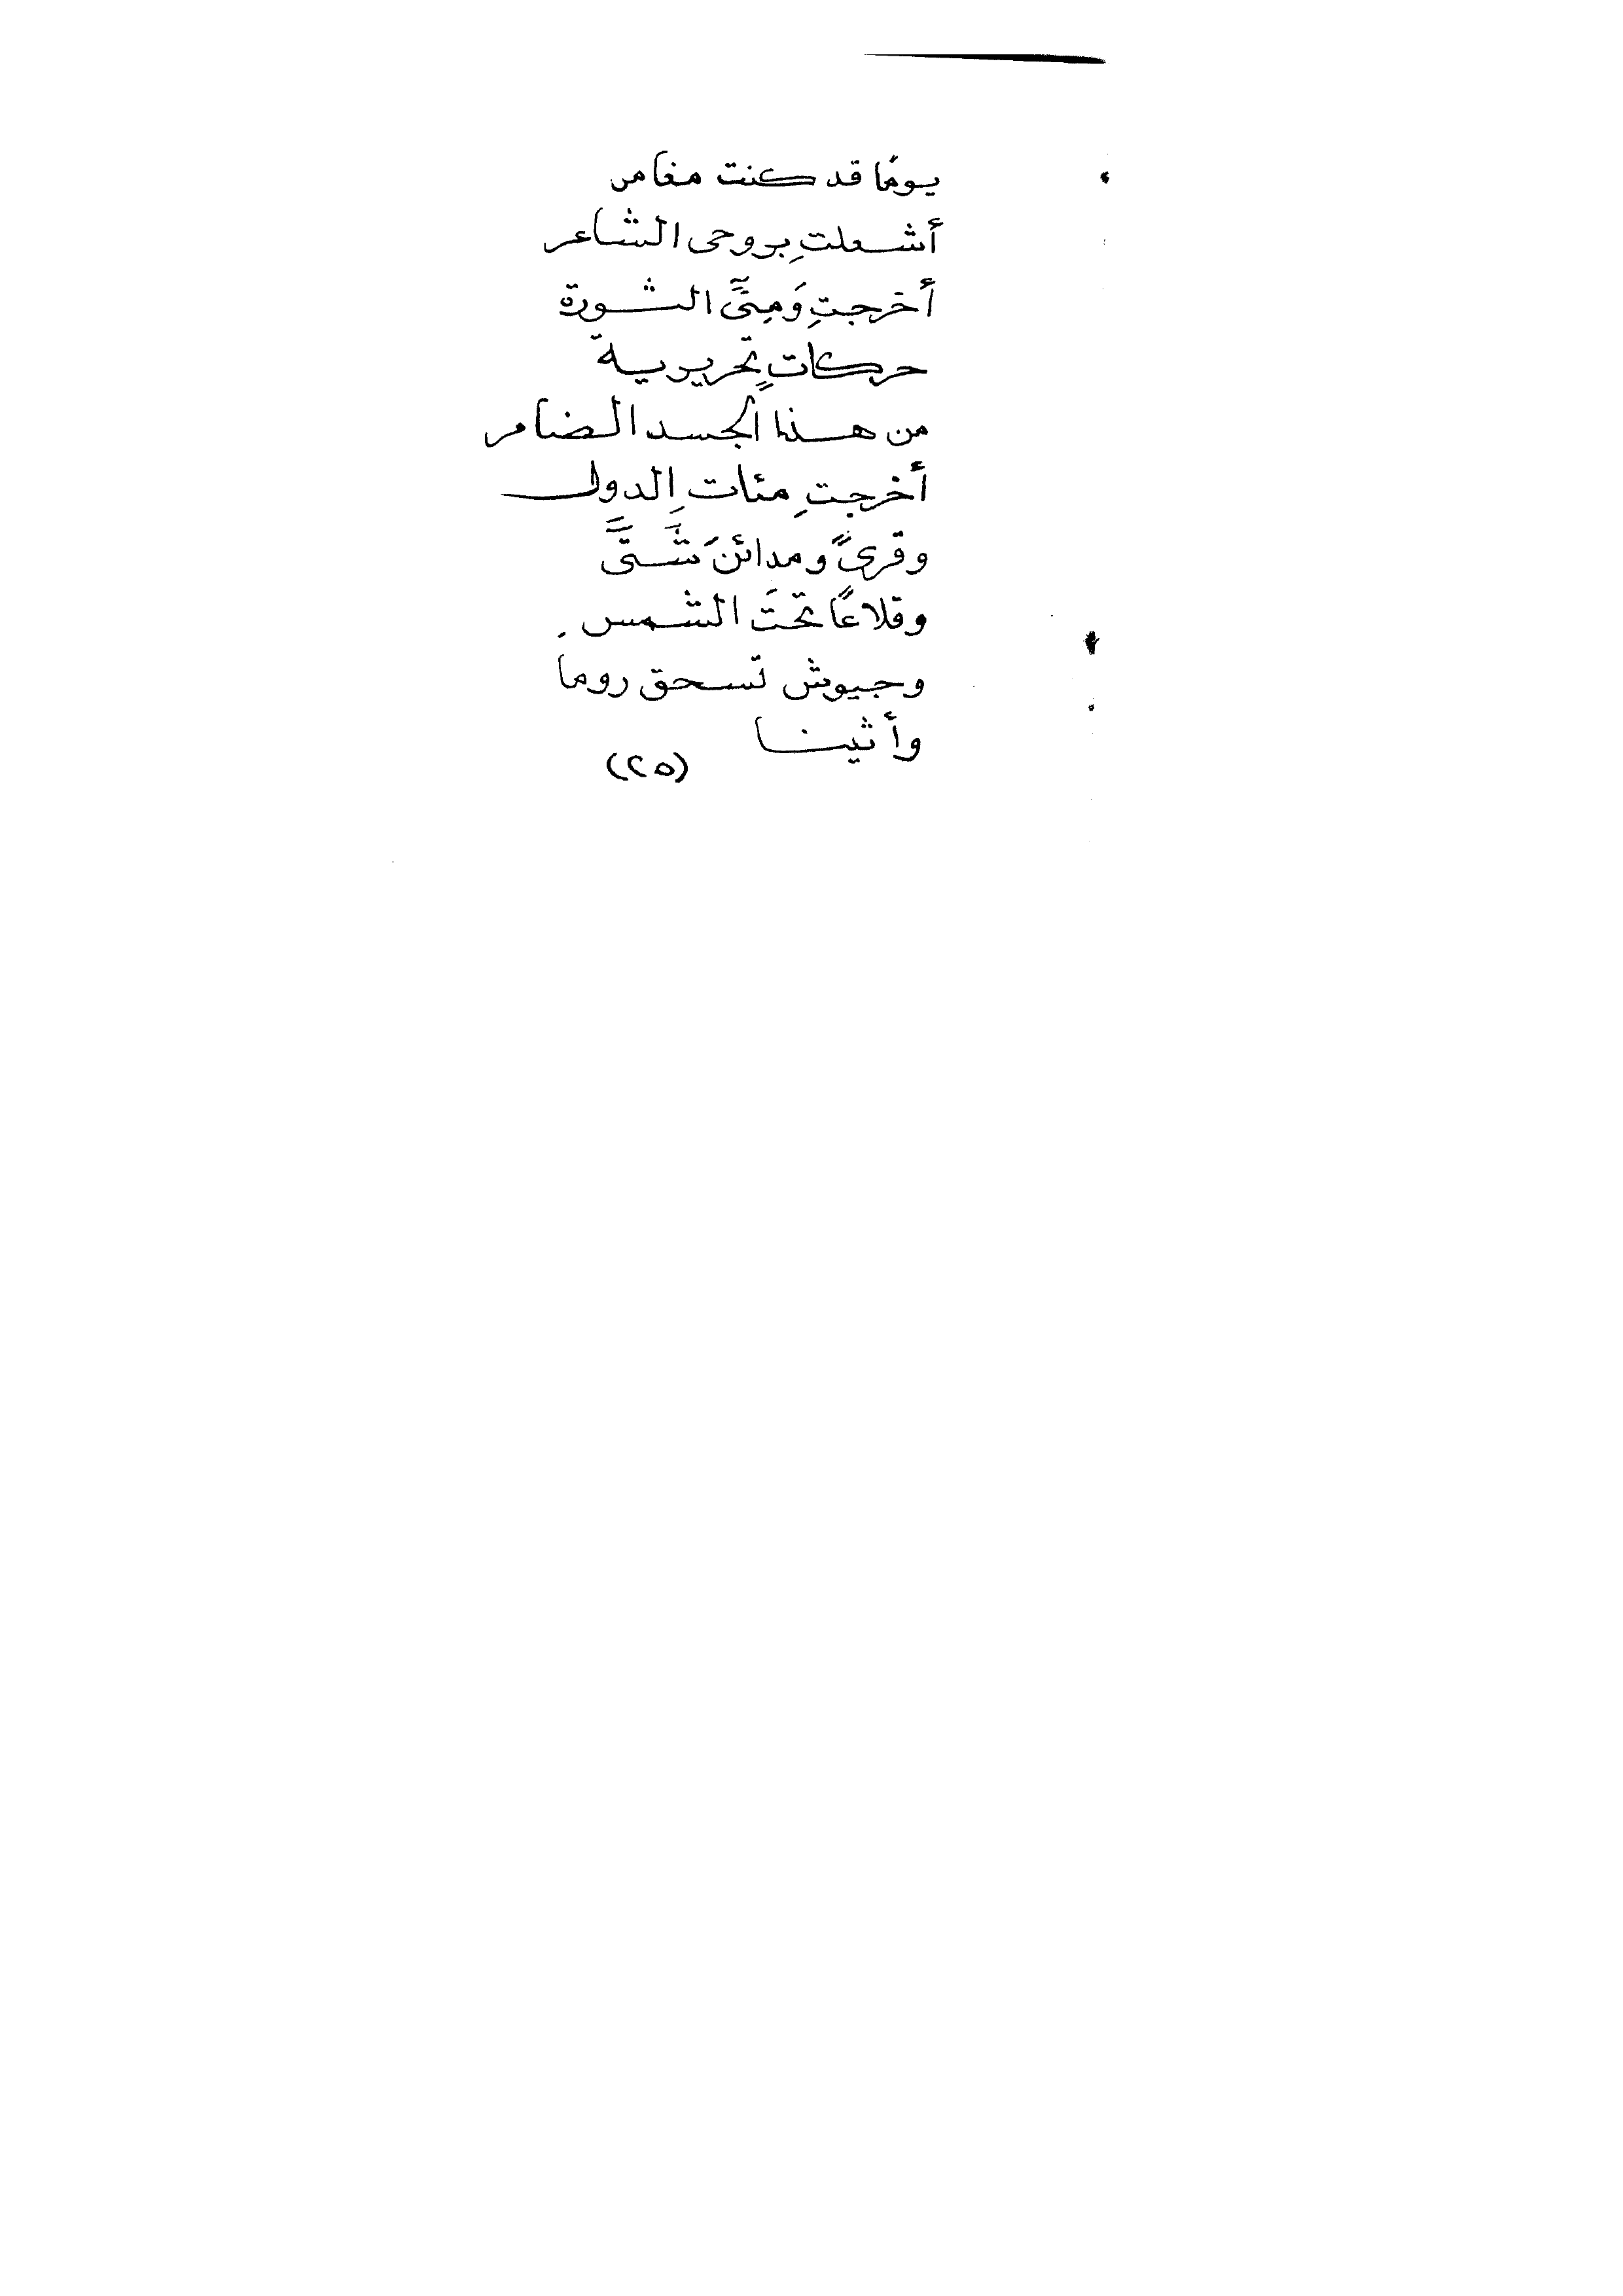 يومًا قد كنت مغامر
أشعلتِ بروحى الشاعر
أخرجتِ وَمِنِّى الثورة
حركاتٍ تحريرية
من هذا الجسد الضامر
أخرجتِ مئات الدول
وقرىً ومدائنَ شَتَّى
وقلاعًا تحتَ الشمس
وجيوش تسحق روما
وأثينا
(٢٥)